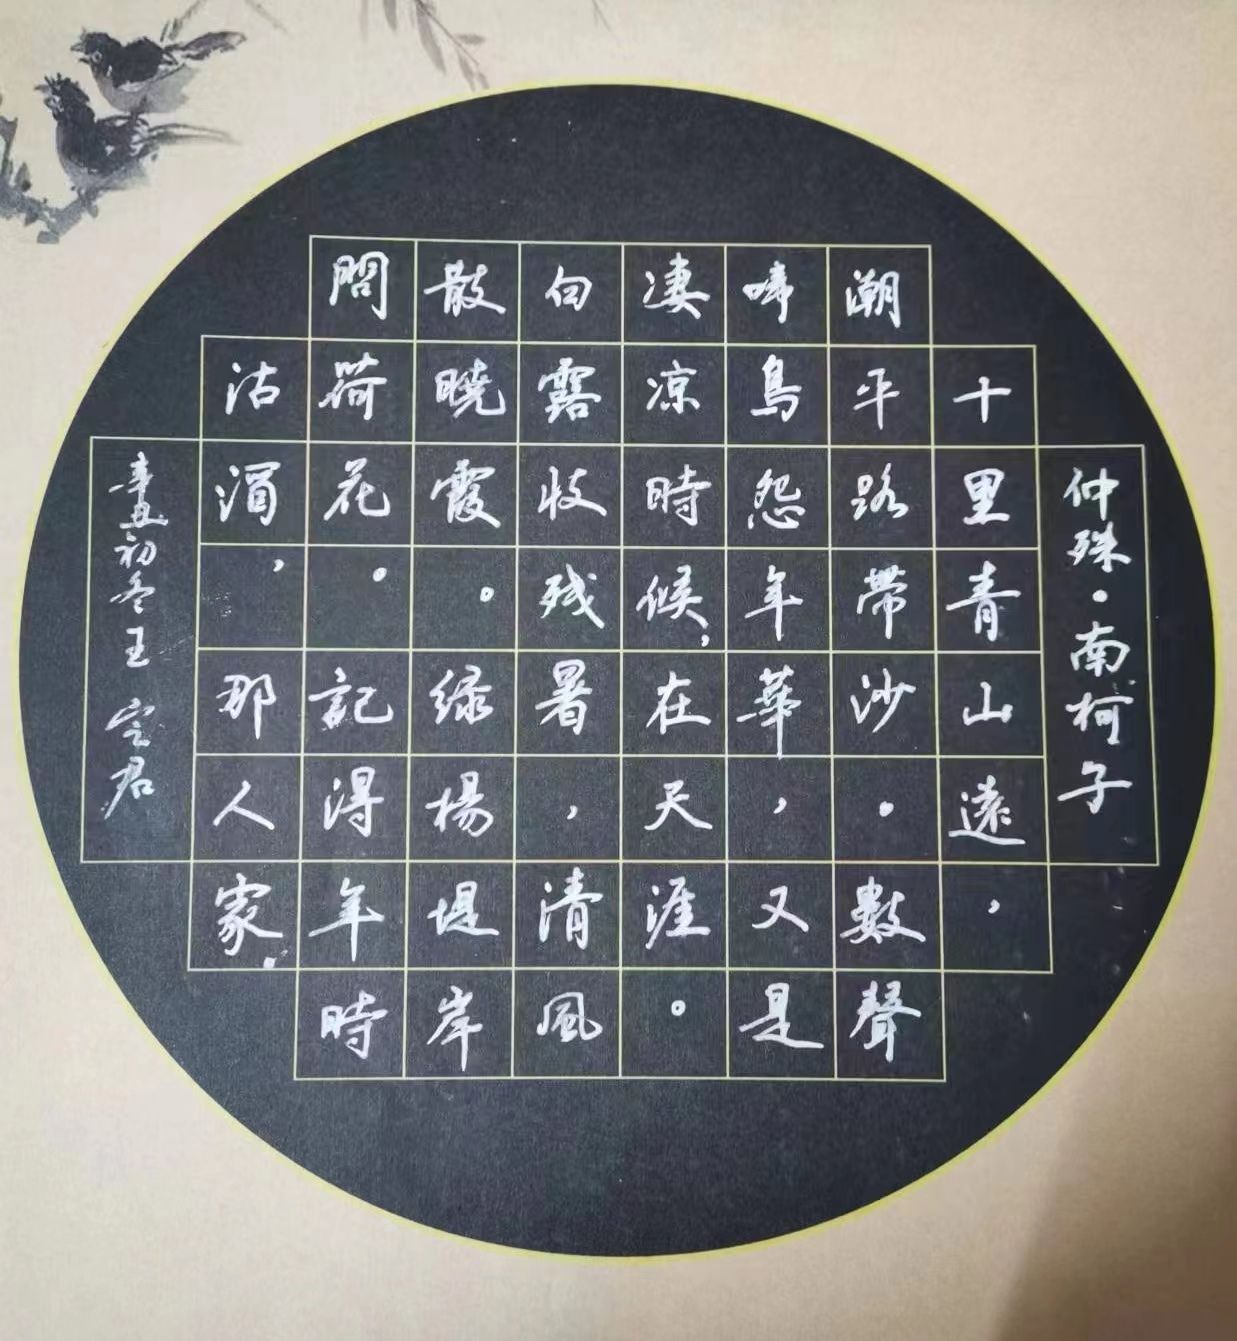 仲殊。南柯子
十里青山遠，
潮平路帶沙。數聲
啼鳥怨年華，又是
凄凉時候，在天涯。
白露收残暑，清風
散曉霞。绿楊堤岸
問荷花。記得年時
沽，那人家。
辛丑初冬王定君